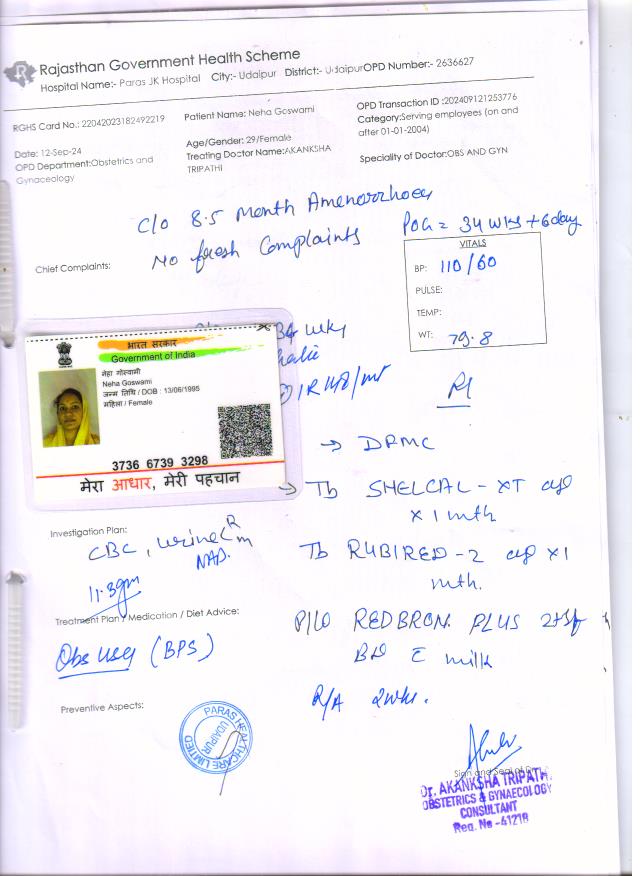 Rajasthan Government Health Scheme
Hospital Name:- Paras JK Hospital City:- Udaipur District:- Udaipur OPD Number:- 2636627
RGHS Card No.: 22042023182492219
Patient Name: Neha Goswami
OPD Transaction ID :202409121253776
Category:Serving employees (on and
after 01-01-2004)
Date: 12-Sep-24
OPD Department:Obstetrics and
Gynaecology
Age/Gender: 29/Female
Treating Doctor Name:AKANKSHA
TRIPATHI
Speciality of Doctor:OBS AND GYN
C/O 8.5 Month Amenorrhoea
POG = 34 wks + 6 day
Chief Complaints:
No fresh Complaints
VITALS
BP: 110/60
PULSE:
TEMP:
WT: 79.8
34 wks
Rx
भारत सरकार
Government of India
नेहा गोस्वामी
Neha Goswami
जन्म तिथि / DOB : 13/06/1995
महिला / Female
3736 6739 3298
मेरा आधार, मेरी पहचान
→ DFMC
→ Tb SHELCAL - XT
x 1 mth
Investigation Plan:
CBC, Urine R/m
NAD.
11.3gm
Tb RUBIRED - 2 x1
mth.
Treatment Plan / Medication / Diet Advice:
Obs usg (BPS)
P/lo REDBRON PLUS 2tsf
BD c milk
R/A 2wks.
Preventive Aspects:
PARAS HEALTHCARE LIMITED
UDAIPUR
Sign and Seal of
Dr. AKANKSHA TRIPATHI
OBSTETRICS & GYNAECOLOGY
CONSULTANT
Reg. No -41218